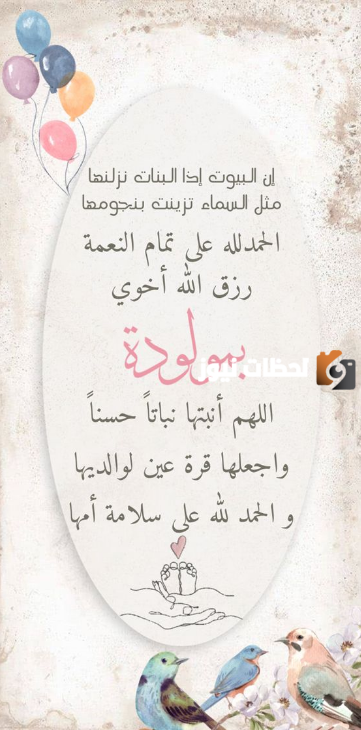 إن البيوت إذا البنات نزلنها
مثل السماء تزينت بنجومها
الحمدلله على تمام النعمة
رزق الله أخوي
بمولودة
لحظات نيوز
اللهم أنبتها نباتاً حسناً
واجعلها قرة عين لوالديها
و الحمد لله على سلامة أمها